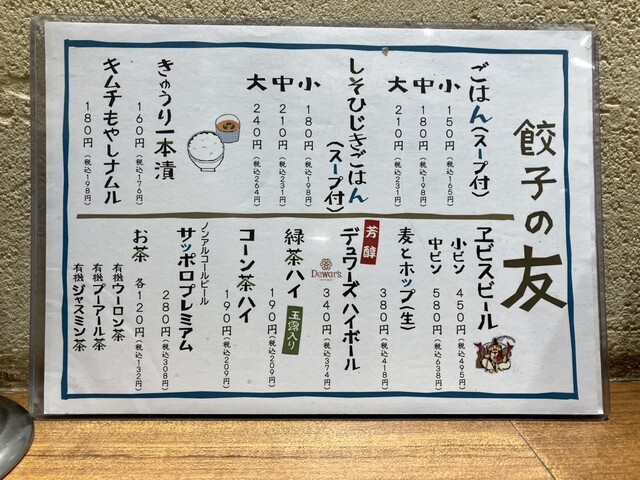 餃子の友
ごはん(スープ付)
小 150円(税込165円)
中 180円(税込198円)
大 210円(税込231円)
しそひじきごはん(スープ付)
小 180円(税込198円)
中 210円(税込231円)
大 240円(税込264円)
きゅうり一本漬
160円(税込176円)
キムチもやしナムル
180円(税込198円)
ヱビスビール
小ビン 450円(税込495円)
中ビン 580円(税込638円)
麦とホップ(生)
380円(税込418円)
芳醇
デュワーズハイボール
Dewar's
340円(税込374円)
緑茶ハイ 玉露入り
190円(税込209円)
コーン茶ハイ
190円(税込209円)
ノンアルコールビール
サッポロプレミアム
280円(税込308円)
お茶
各120円(税込132円)
有機ウーロン茶
有機プーアール茶
有機ジャスミン茶